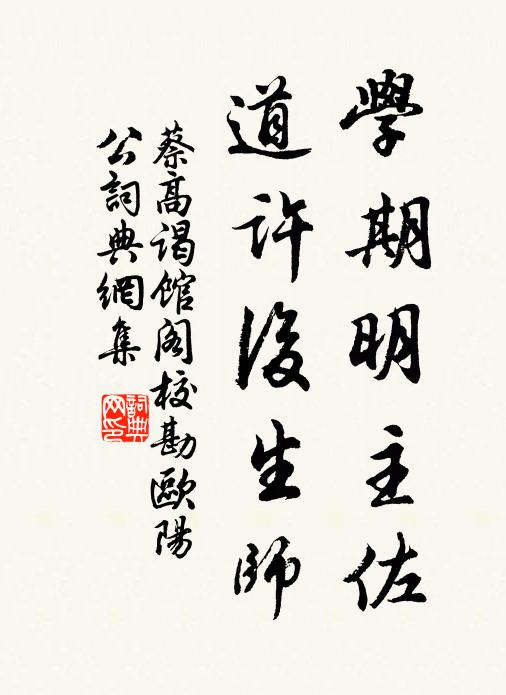 學期明主佐
道許後生師
蔡高謁館閣校勘歐陽
公詞典網集
詞典网印